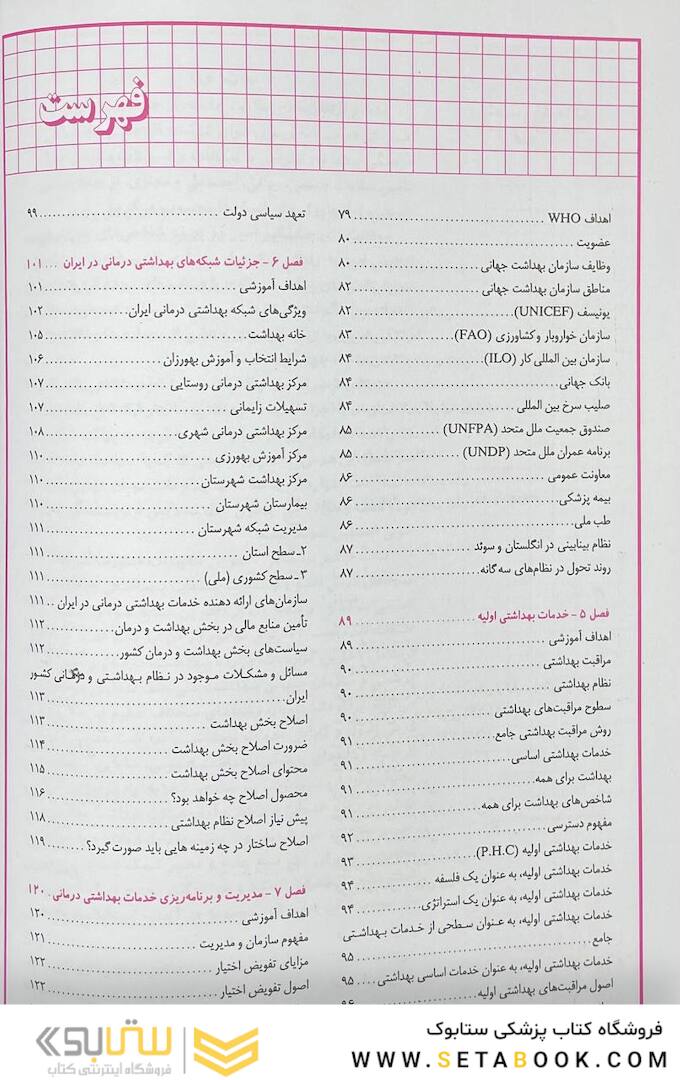 فهرست
اهداف WHO ........ ۷۹
عضویت ........ ۸۰
وظایف سازمان بهداشت جهانی ........ ۸۰
مناطق سازمان بهداشت جهانی ........ ۸۲
یونیسف (UNICEF) ........ ۸۲
سازمان خواروبار و کشاورزی (FAO) ........ ۸۳
سازمان بین المللی کار (ILO) ........ ۸۴
بانک جهانی ........ ۸۴
صلیب سرخ بین المللی ........ ۸۴
صندوق جمعیت ملل متحد (UNFPA) ........ ۸۵
برنامه عمران ملل متحد (UNDP) ........ ۸۵
معاونت عمومی ........ ۸۶
بیمه پزشکی ........ ۸۶
طب ملی ........ ۸۶
نظام بینابینی در انگلستان و سوئد ........ ۸۷
روند تحول در نظام‌های سه گانه ........ ۸۷
فصل ۵ - خدمات بهداشتی اولیه ........ ۸۹
اهداف آموزشی ........ ۸۹
مراقبت بهداشتی ........ ۹۰
نظام بهداشتی ........ ۹۰
سطوح مراقبت‌های بهداشتی ........ ۹۰
روش مراقبت بهداشتی جامع ........ ۹۱
خدمات بهداشتی اساسی ........ ۹۱
بهداشت برای همه ........ ۹۱
شاخص‌های بهداشت برای همه ........ ۹۱
مفهوم دسترسی ........ ۹۲
خدمات بهداشتی اولیه (P.H.C) ........ ۹۳
خدمات بهداشتی اولیه، به عنوان یک فلسفه ........ ۹۴
خدمات بهداشتی اولیه، به عنوان یک استراتژی ........ ۹۴
خدمات بهداشتی اولیه، به عنوان سطحی از خدمات بهداشتی
جامع ........ ۹۵
خدمات بهداشتی اولیه، به عنوان خدمات اساسی بهداشتی ........ ۹۵
اصول مراقبت‌های بهداشتی اولیه ........ ۹۶
تعهد سیاسی دولت ........ ۹۹
فصل ۶ - جزئیات شبکه‌های بهداشتی درمانی در ایران .... ۱۰۱
اهداف آموزشی ........ ۱۰۱
ویژگی‌های شبکه بهداشتی درمانی ایران ........ ۱۰۲
خانه بهداشت ........ ۱۰۵
شرایط انتخاب و آموزش بهورزان ........ ۱۰۶
مرکز بهداشتی درمانی روستایی ........ ۱۰۷
تسهیلات زایمانی ........ ۱۰۷
مرکز بهداشتی درمانی شهری ........ ۱۰۸
مرکز آموزش بهورزی ........ ۱۱۰
مرکز بهداشت شهرستان ........ ۱۱۰
بیمارستان شهرستان ........ ۱۱۰
مدیریت شبکه شهرستان ........ ۱۱۱
۲ـ سطح استان ........ ۱۱۱
۳ـ سطح کشوری (ملی) ........ ۱۱۱
سازمان‌های ارائه دهنده خدمات بهداشتی درمانی در ایران .. ۱۱۱
تأمین منابع مالی در بخش بهداشت و درمان ........ ۱۱۲
سیاست‌های بخش بهداشت و درمان کشور ........ ۱۱۲
مسائل و مشکلات موجود در نظام بهداشتی و کشور
ایران ........ ۱۱۳
اصلاح بخش بهداشت ........ ۱۱۳
ضرورت اصلاح بخش بهداشت ........ ۱۱۴
محتوای اصلاح بخش بهداشت ........ ۱۱۵
محصول اصلاح چه خواهد بود؟ ........ ۱۱۶
پیش نیاز اصلاح نظام بهداشتی ........ ۱۱۸
اصلاح ساختار در چه زمینه هایی باید صورت گیرد؟ ........ ۱۱۹
فصل ۷ - مدیریت و برنامه‌ریزی خدمات بهداشتی درمانی . ۱۲۰
اهداف آموزشی ........ ۱۲۰
مفهوم سازمان و مدیریت ........ ۱۲۱
مزایای تفویض اختیار ........ ۱۲۲
اصول تفویض اختیار ........ ۱۲۲
فروشگاه کتاب پزشکی ستابوک
WWW.SETABOOK.COM
ستابوک
فروشگاه اینترنتی کتاب